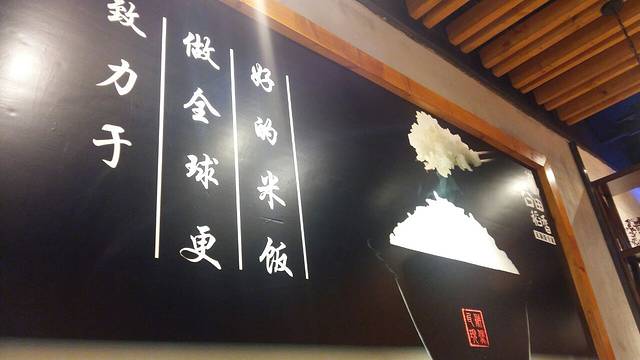 致力于
做全球更
好的米饭
稻香